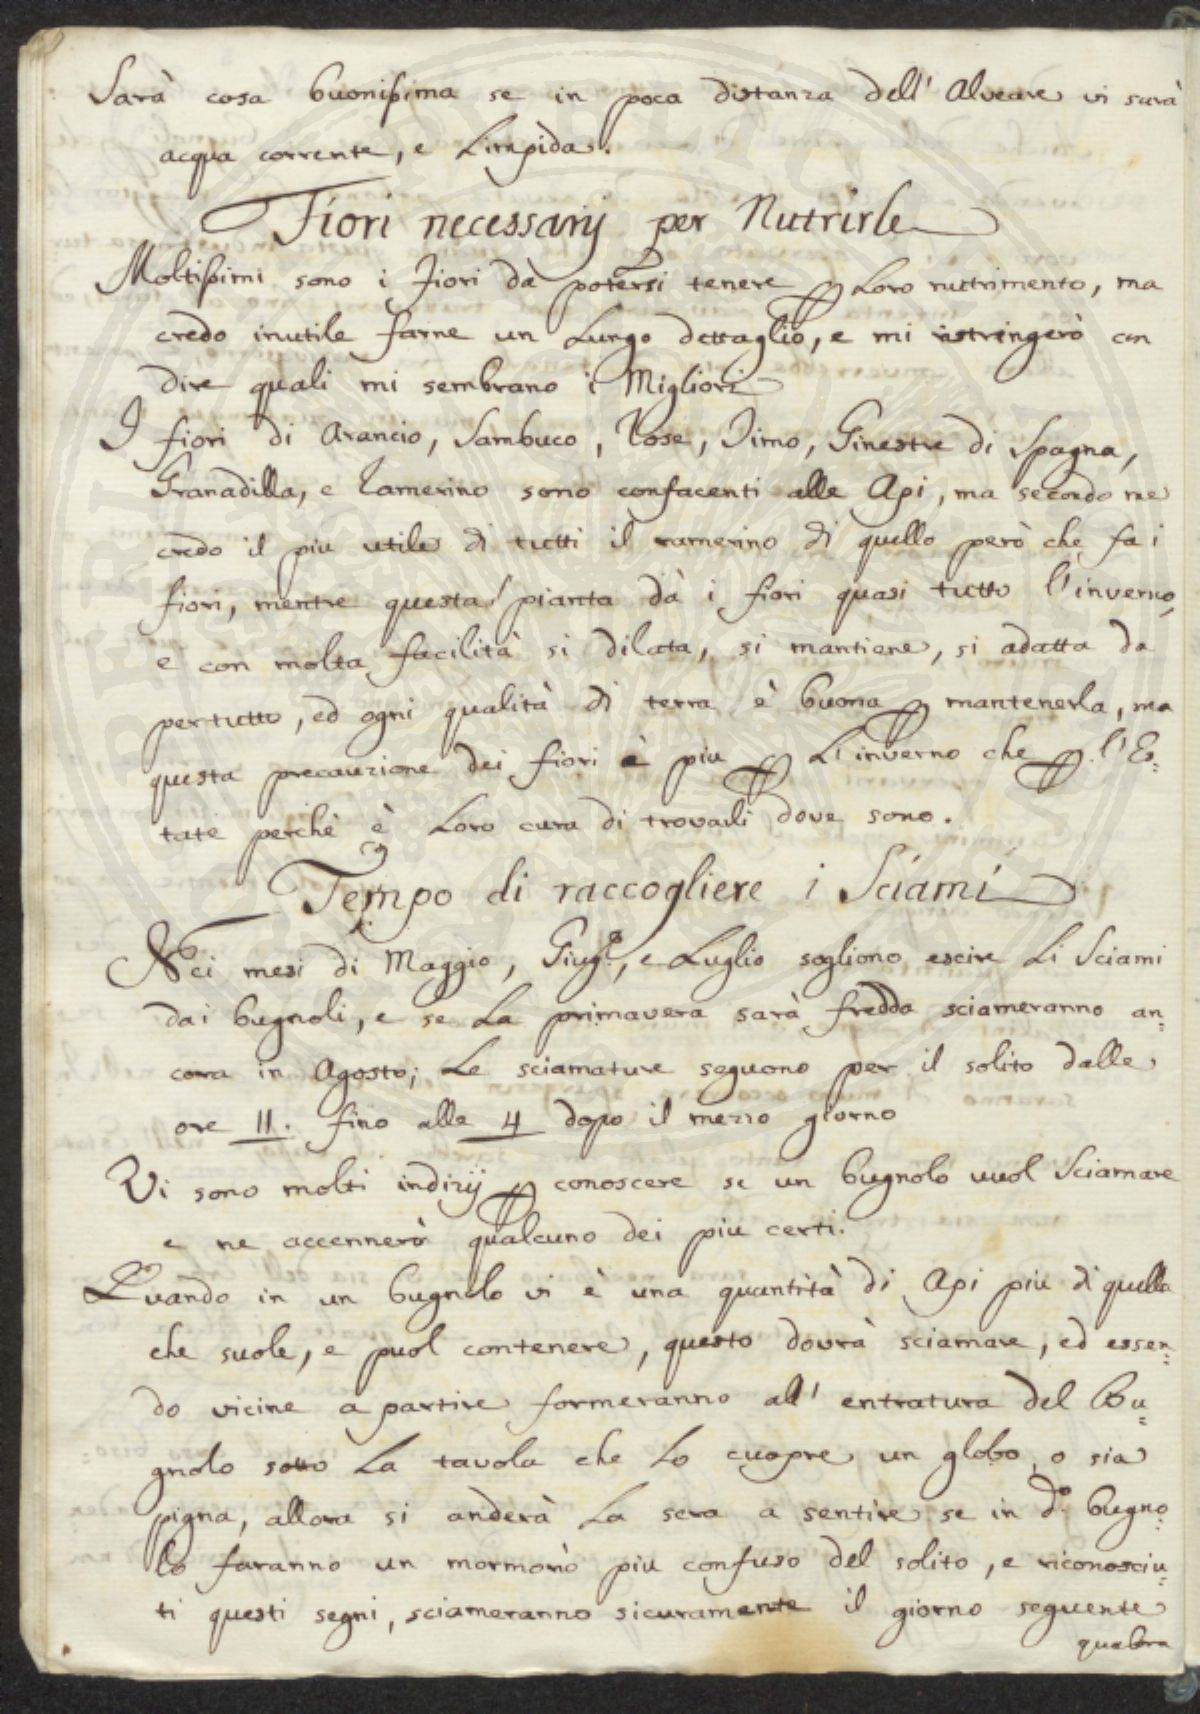 Sarà cosa buonissima se in poca distanza dell' Alveare vi sarà
acqua corrente, e Limpida.
Fiori necessarij per Nutrirle
Moltissimi sono i Fiori da potersi tenere p Loro nutrimento, ma
credo inutile farne un Lungo dettaglio, e mi ristringerò con
dire quali mi sembrano i Migliori
I fiori di Arancio, Sambuco, Rose, Timo, Ginestre di Spagna,
Granadilla, e Ramerino sono confacenti alle Api, ma secondo me
credo il piu utile di tutti il ramerino di quello però che fa i
fiori, mentre questa pianta dà i fiori quasi tutto l'inverno,
e con molta facilità si dilata, si mantiene, si adatta da
pertutto, ed ogni qualità di terra è buona p mantenerla, ma
questa precauzione dei fiori è piu p L'inverno che p l'Es=
tate perchè è Loro cura di trovarli dove sono.
Tempo di raccogliere i Sciami
Nei mesi di Maggio, Giug.o, e Luglio sogliono escire Li Sciami
dai bugnoli, e se La primavera sarà fredda sciameranno an=
cora in Agosto; Le sciamature seguono per il solito dalle
ore 11. fino alle 4 dopo il mezzo giorno
Vi sono molti indizij p conoscere se un bugnolo vuol Sciamare
e ne accennerò qualcuno dei piu certi.
Quando in un bugnolo vi è una quantità di Api piu di quella
che suole, e puol contenere, questo dovrà sciamare, ed essen=
do vicine a partire formeranno all' entratura del Bu=
gnolo sotto La tavola che Lo cuopre un globo, o sia
pigna, allora si anderà La sera a sentire se in do. bugno=
lo faranno un mormorìo piu confuso del solito, e riconosciu=
ti questi segni, sciameranno sicuramente il giorno seguente
qualora